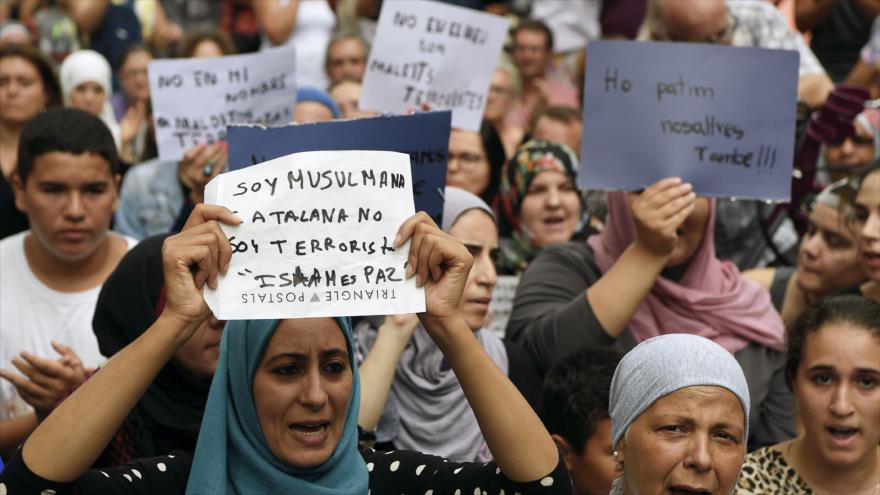 NO EN MI
NOMBRE
MALDITOS
TERR
NO EN EL NO
SON
MALDITS
TERRORISTES
Ho patim
nosaltres
Tambe!!!
SOY MUSULMANA
ATALANA NO
SOY TERRORIST
"ISLAM ES PAZ"
TRIANGLE POSTALS